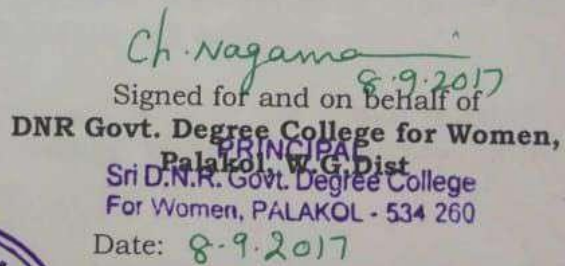 Ch. Nagama
8.9.2017
Signed for and on behalf of
DNR Govt. Degree College for Women,
PRINCIPAL
Palakol, W.G.Dist
Sri D.N.R. Govt. Degree College
For Women, PALAKOL - 534 260
Date: 8.9.2017